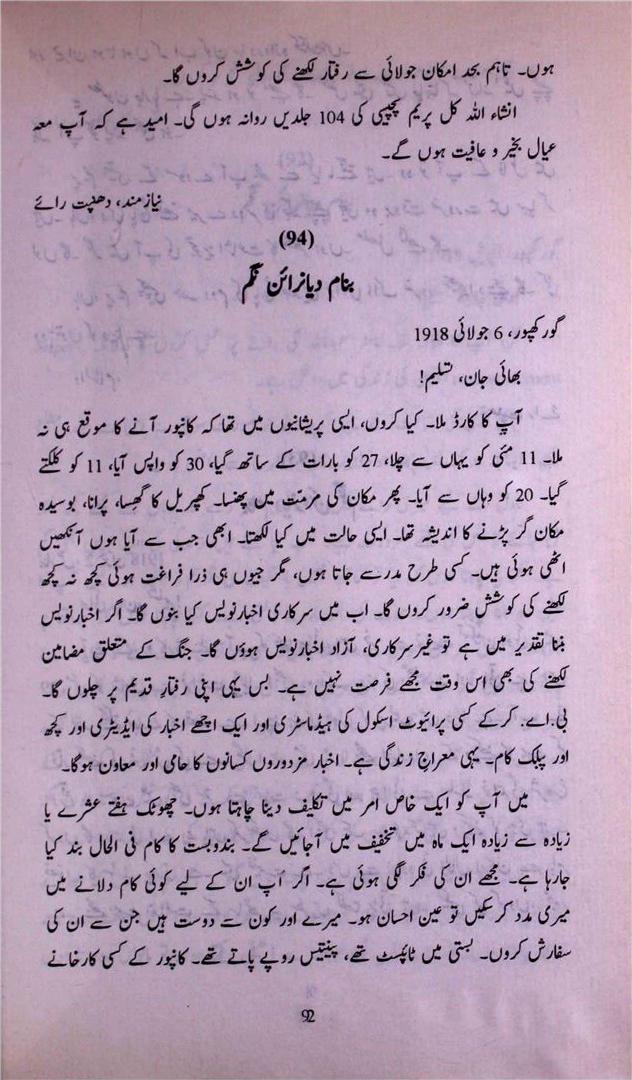 ہوں۔ تاہم بحد امکان جولائی سے رفتار لکھنے کی کوشش کروں گا۔
انشاء اللہ کل پریم پچیسی کی 104 جلدیں روانہ ہوں گی۔ امید ہے کہ آپ معہ
عیال بخیر و عافیت ہوں گے۔
نیازمند، دھنپت رائے
(94)
بنام دیانرائن نگم
گورکھپور، 6 جولائی 1918
بھائی جان، تسلیم!
آپ کا کارڈ ملا۔ کیا کروں، ایسی پریشانیوں میں تھا کہ کانپور آنے کا موقع ہی نہ
ملا۔ 11 مئی کو یہاں سے چلا، 27 کو بارات کے ساتھ گیا، 30 کو واپس آیا، 11 کو کلکتے
گیا۔ 20 کو وہاں سے آیا۔ پھر مکان کی مرمت میں پھنسا۔ کھپریل کا گھِسا، پرانا، بوسیدہ
مکان گر پڑنے کا اندیشہ تھا۔ ایسی حالت میں کیا لکھتا۔ ابھی جب سے آیا ہوں آنکھیں
اٹھی ہوئی ہیں۔ کسی طرح مدرسے جاتا ہوں، مگر جیوں ہی ذرا فراغت ہوئی کچھ نہ کچھ
لکھنے کی کوشش ضرور کروں گا۔ اب میں سرکاری اخبارنویس کیا بنوں گا۔ اگر اخبارنویس
بننا تقدیر میں ہے تو غیرسرکاری، آزاد اخبارنویس ہوؤں گا۔ جنگ کے متعلق مضامین
لکھنے کی بھی اس وقت مجھے فرصت نہیں ہے۔ بس یہی اپنی رفتارِ قدیم پر چلوں گا۔
بی.اے. کرکے کسی پرائیوٹ اسکول کی ہیڈماسٹری اور ایک اچھے اخبار کی ایڈیٹری اور کچھ
اور پبلک کام۔ یہی معراجِ زندگی ہے۔ اخبار مزدوروں کسانوں کا حامی اور معاون ہوگا۔
میں آپ کو ایک خاص امر میں تکلیف دینا چاہتا ہوں۔ چھوٹک ہفتے عشرے یا
زیادہ سے زیادہ ایک ماہ میں تخفیف میں آجائیں گے۔ بندوبست کا کام فی الحال بند کیا
جارہا ہے۔ مجھے ان کی فکر لگی ہوئی ہے۔ اگر آپ ان کے لیے کوئی کام دلانے میں
میری مدد کرسکیں تو عین احسان ہو۔ میرے اور کون سے دوست ہیں جن سے ان کی
سفارش کروں۔ بستی میں ٹائپسٹ تھے، پینتیس روپے پاتے تھے۔ کانپور کے کسی کارخانے
92